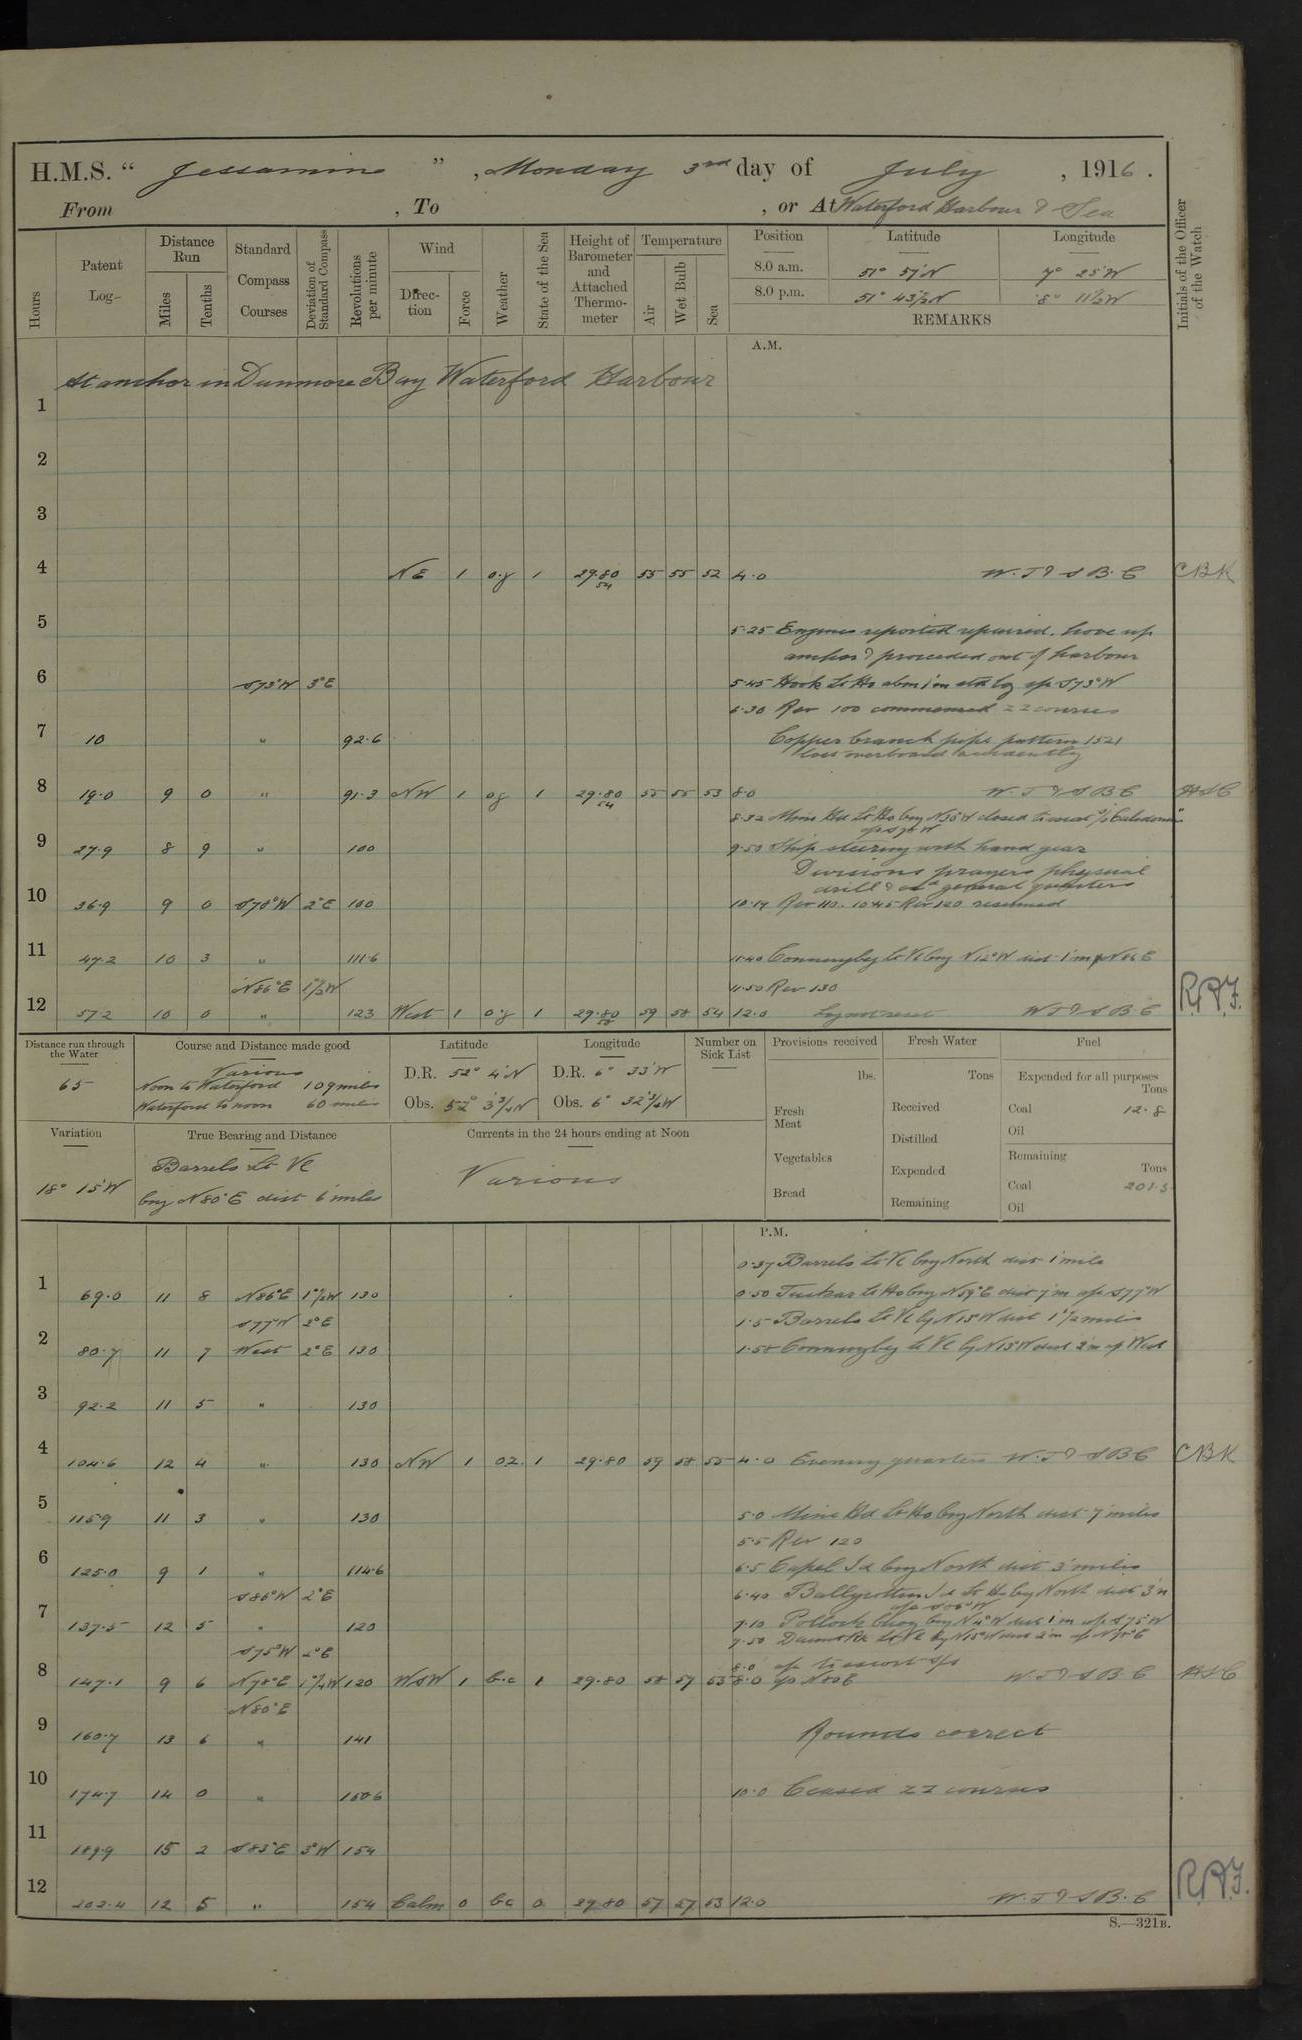 H.M.S. "Jessamine", Monday 3rd day of July, 1916.
From , To , or At Waterford Harbour & Sea
Hours
Patent Log
Distance Run
Miles
Tenths
Standard Compass Courses
Deviation of Standard Compass
Revolutions per minute
Wind
Direction
Force
Weather
State of the Sea
Height of Barometer and Attached Thermometer
Temperature
Air
Wet Bulb
Sea
Position Latitude Longitude
8.0 a.m. 51° 57'N 7° 25'W
8.0 p.m. 51° 43½N 8° 11½W
REMARKS
Initials of the Officer of the Watch
A.M.
At anchor in Dunmore Bay Waterford Harbour
1
2
3
4 NE 1 o.g 1 29.80 54 55 55 52 4.0 W.T & S B.C CBK
5 5.25 Engines reported repaired. hove up
anchor & proceeded out of harbour
6 S73°W 3°E 5.45 Hook Lt Ho abm 1'm S73°W
6.30 Rev 100 commenced ZZ courses
7 10 " 92.6 Copper branch pipe pattern 1521
lost overboard accidently
8 19.0 9 0 " 91.3 NW 1 og 1 29.80 54 55 55 53 8.0 W.T & S B C
8.32 Mine Hd Lt Ho brg N30°W closed to
9 27.9 8 9 " 100 9.50 Ship steering with hand gear
Divisions prayers physical
drill & general quarters
10 36.9 9 0 S70°W 2°E 100 10.19 Rev 110. 10.45 Rev 120 resumed
11 47.2 10 3 " 111.6 11.40 Conningbeg Lt Vl brg N12°W dist 1'm N86E
N86°E 1½W 11.50 Rev 130
12 57.2 10 0 " 123 West 1 o.g 1 29.80 59 58 54 12.0 Log not reset W T & S B.C
Distance run through the Water
65
Course and Distance made good
Various
Noon to Waterford 109 miles
Waterford to noon 60 miles
Latitude
D.R. 52° 4'N
Obs. 52° 3¾N
Longitude
D.R. 6° 33'W
Obs. 6° 32¾W
Number on Sick List
Provisions received
lbs.
Fresh Meat
Vegetables
Bread
Fresh Water
Tons
Received
Distilled
Expended
Remaining
Fuel
Expended for all purposes
Tons
Coal 12.8
Oil
Remaining
Tons
Coal 201.5
Oil
Variation
18° 15'W
True Bearing and Distance
Barrels Lt Vl
brg N80°E dist 6 miles
Currents in the 24 hours ending at Noon
Various
P.M.
0.37 Barrels Lt Vl brg North dist 1 mile
1 69.0 11 8 N86°E 1½W 130 0.50 Tuskar Lt Ho brg N59°E dist 7'm a/c S77°W
S77°W 2°E 1.5 Barrels Lt Vl bg N15W dist 1½ miles
2 80.7 11 7 West 2°E 130 1.58 Conningbeg Lt Vl bg N15W dist 2'm a/c West
3 92.2 11 5 " 130
4 104.6 12 4 " 130 NW 1 oz 1 29.80 59 58 55 4.0 Evening quarters W.T & S B C CBK
5 115.9 11 3 " 130 5.0 Mine Hd Lt Ho brg North dist 7 miles
5.5 Rev 120
6 125.0 9 1 " 114.6 6.5 Capel Id brg North dist 3 miles
S86°W 2°E 6.40 Ballycotton Id Lt Ho bg North dist 3'm
a/c S86°W
7 137.5 12 5 " 120 7.10 Pollock buoy brg N4°W dist 1'm a/c S75°W
S75°W 2°E 7.50 Daunt Rk Lt Vl bg N15°W dist 2'm a/c N78°E
8.0 to escort
8 147.1 9 6 N78°E 1¼W 120 WSW 1 b.c 1 29.80 58 57 53 8.0 a/c N80E W.T & S B C
N80°E
9 160.7 13 6 " 141 Rounds correct
10 174.7 14 0 " 150.6 10.0 Ceased ZZ courses
11 189.9 15 2 S83°E 3°W 154
12 202.4 12 5 " 154 Calm 0 bc 0 29.80 57 57 53 12.0 W.T & S B.C
S.—321B.